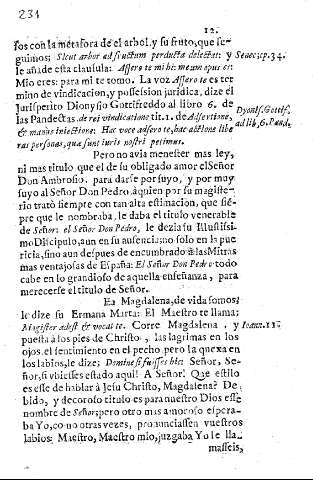 231
12.
ſos con la metáfora de el arbol, y ſu fruto, que ſe-
guimos; Sicut arbor ad fructum perducta delectat: y
le añade eſta clauſula: Aſſero te mihi: meum opus es:
Senec. ep. 34.
Mio eres: para mi te tomo. La voz Aſſero te es ter
mino de vindicacion, y poſſeſsion juridica, dize el
Juriſperito Dionyſio Gottifreddo al libro 6. de
las Pandectas. de rei vindicatione tit. 1. de Adſertione,
& manus iniectione: Hac voce adſero te, hac actione libe
ras perſonas, quæ ſunt iuris noſtri petimus.
Dyoniſ. Gottif.
ad lib. 6. Pand.
Pero no avia meneſter mas ley,
ni mas titulo que el de ſu obligado amor el Señor
Don Ambroſio, para darſe por ſuyo, y por muy
ſuyo al Señor Don Pedro, à quien por ſu magiſte-
rio tratò ſiempre con tan alta eſtimacion, que ſiē-
pre que le nombraba, le daba el titulo venerable
de Señor: el Señor Don Pedro, le dezia ſu Illuſtriſsi-
mo Diſcipulo, aun en ſu auſencia: no ſolo en la pue
ricia, ſino aun deſpues de encumbrado à las Mitras
mas ventajoſas de Eſpaña: El Señor Don Pedro: todo
cabe en lo grandioſo de aquella enſeñanza, para
merecerſe el titulo de Señor.
Ea Magdalena, de vida ſomos;
le dize ſu Ermana Marta: El Maeſtro te llama;
Magiſter adeſt & vocat te. Corre Magdalena, y
Ioann. 11.
pueſta à los pies de Chriſto, las lagrimas en los
ojos, el ſentimiento en el pecho, pero la quexa en
los labios, le dize: Domine ſi fuiſſes hic: Señor, Se-
ñor, ſi vbieſſes eſtado aqui! A Señor! Que eſtilo
es eſſe de hablar à Jeſu Chriſto, Magdalena? De-
bido, y decoroſo titulo es para nueſtro Dios eſſe
nombre de Señor; pero otro mas amoroſo eſpera-
ba Yo, como otras vezes, pronunciaſſen vueſtros
labios: Maeſtro, Maeſtro mio, juzgaba Yo le lla-
maſſeis,